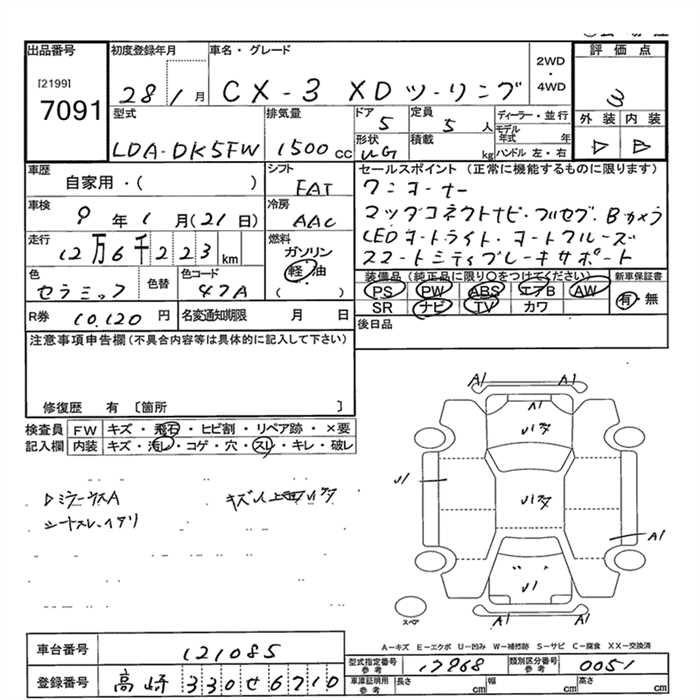 出品番号 初度登録年月 車名・グレード 2WD・4WD 評価点
[2199] 7091 28年1月 CX-3 XDツーリング 3
型式 排気量 ドア 5 定員 5人 ディーラー・並行 外装 内装
LDA-DK5FW 1500cc 形状 積載 kg モデル年式 年 ハンドル 左・右
車歴 自家用・( ) シフト FAT
セールスポイント (正常に機能するものに限ります)
ワンオーナー
マツダコネクトナビ・フルセグ・Bカメラ
LEDオートライト・オートクルーズ
スマートシティブレーキサポート
車検 9年1月(21日) 冷房 AAC
走行 12万6千223km 燃料 ガソリン 軽油 ( )
色 セラミック 色替 色コード 47A
装備品 (純正品に限り○をつけてください) 新車保証書
PS PW ABS エアB AW 有・無
SR ナビ TV カワ
R券 10,120円 名変通知期限 月 日
後日品
注意事項申告欄(不具合内容等は具体的に記入して下さい)
修復歴 有 [箇所 ]
検査員記入欄 FW キズ・飛石・ヒビ割・リペア跡・×要
内装 キズ・汚レ・コゲ・穴・スレ・キレ・破レ
A1 A1
A1
A1
A1 A1
スペア
A−キズ E−エクボ U−凹み W−補修跡 S−サビ C−腐食 XX−交換済
車台番号 121085
型式指定番号 参考 17968 類別区分番号 参考 0051
登録番号 高崎330せ6710
車庫証明用 参考 長さ cm 幅 cm 高さ cm